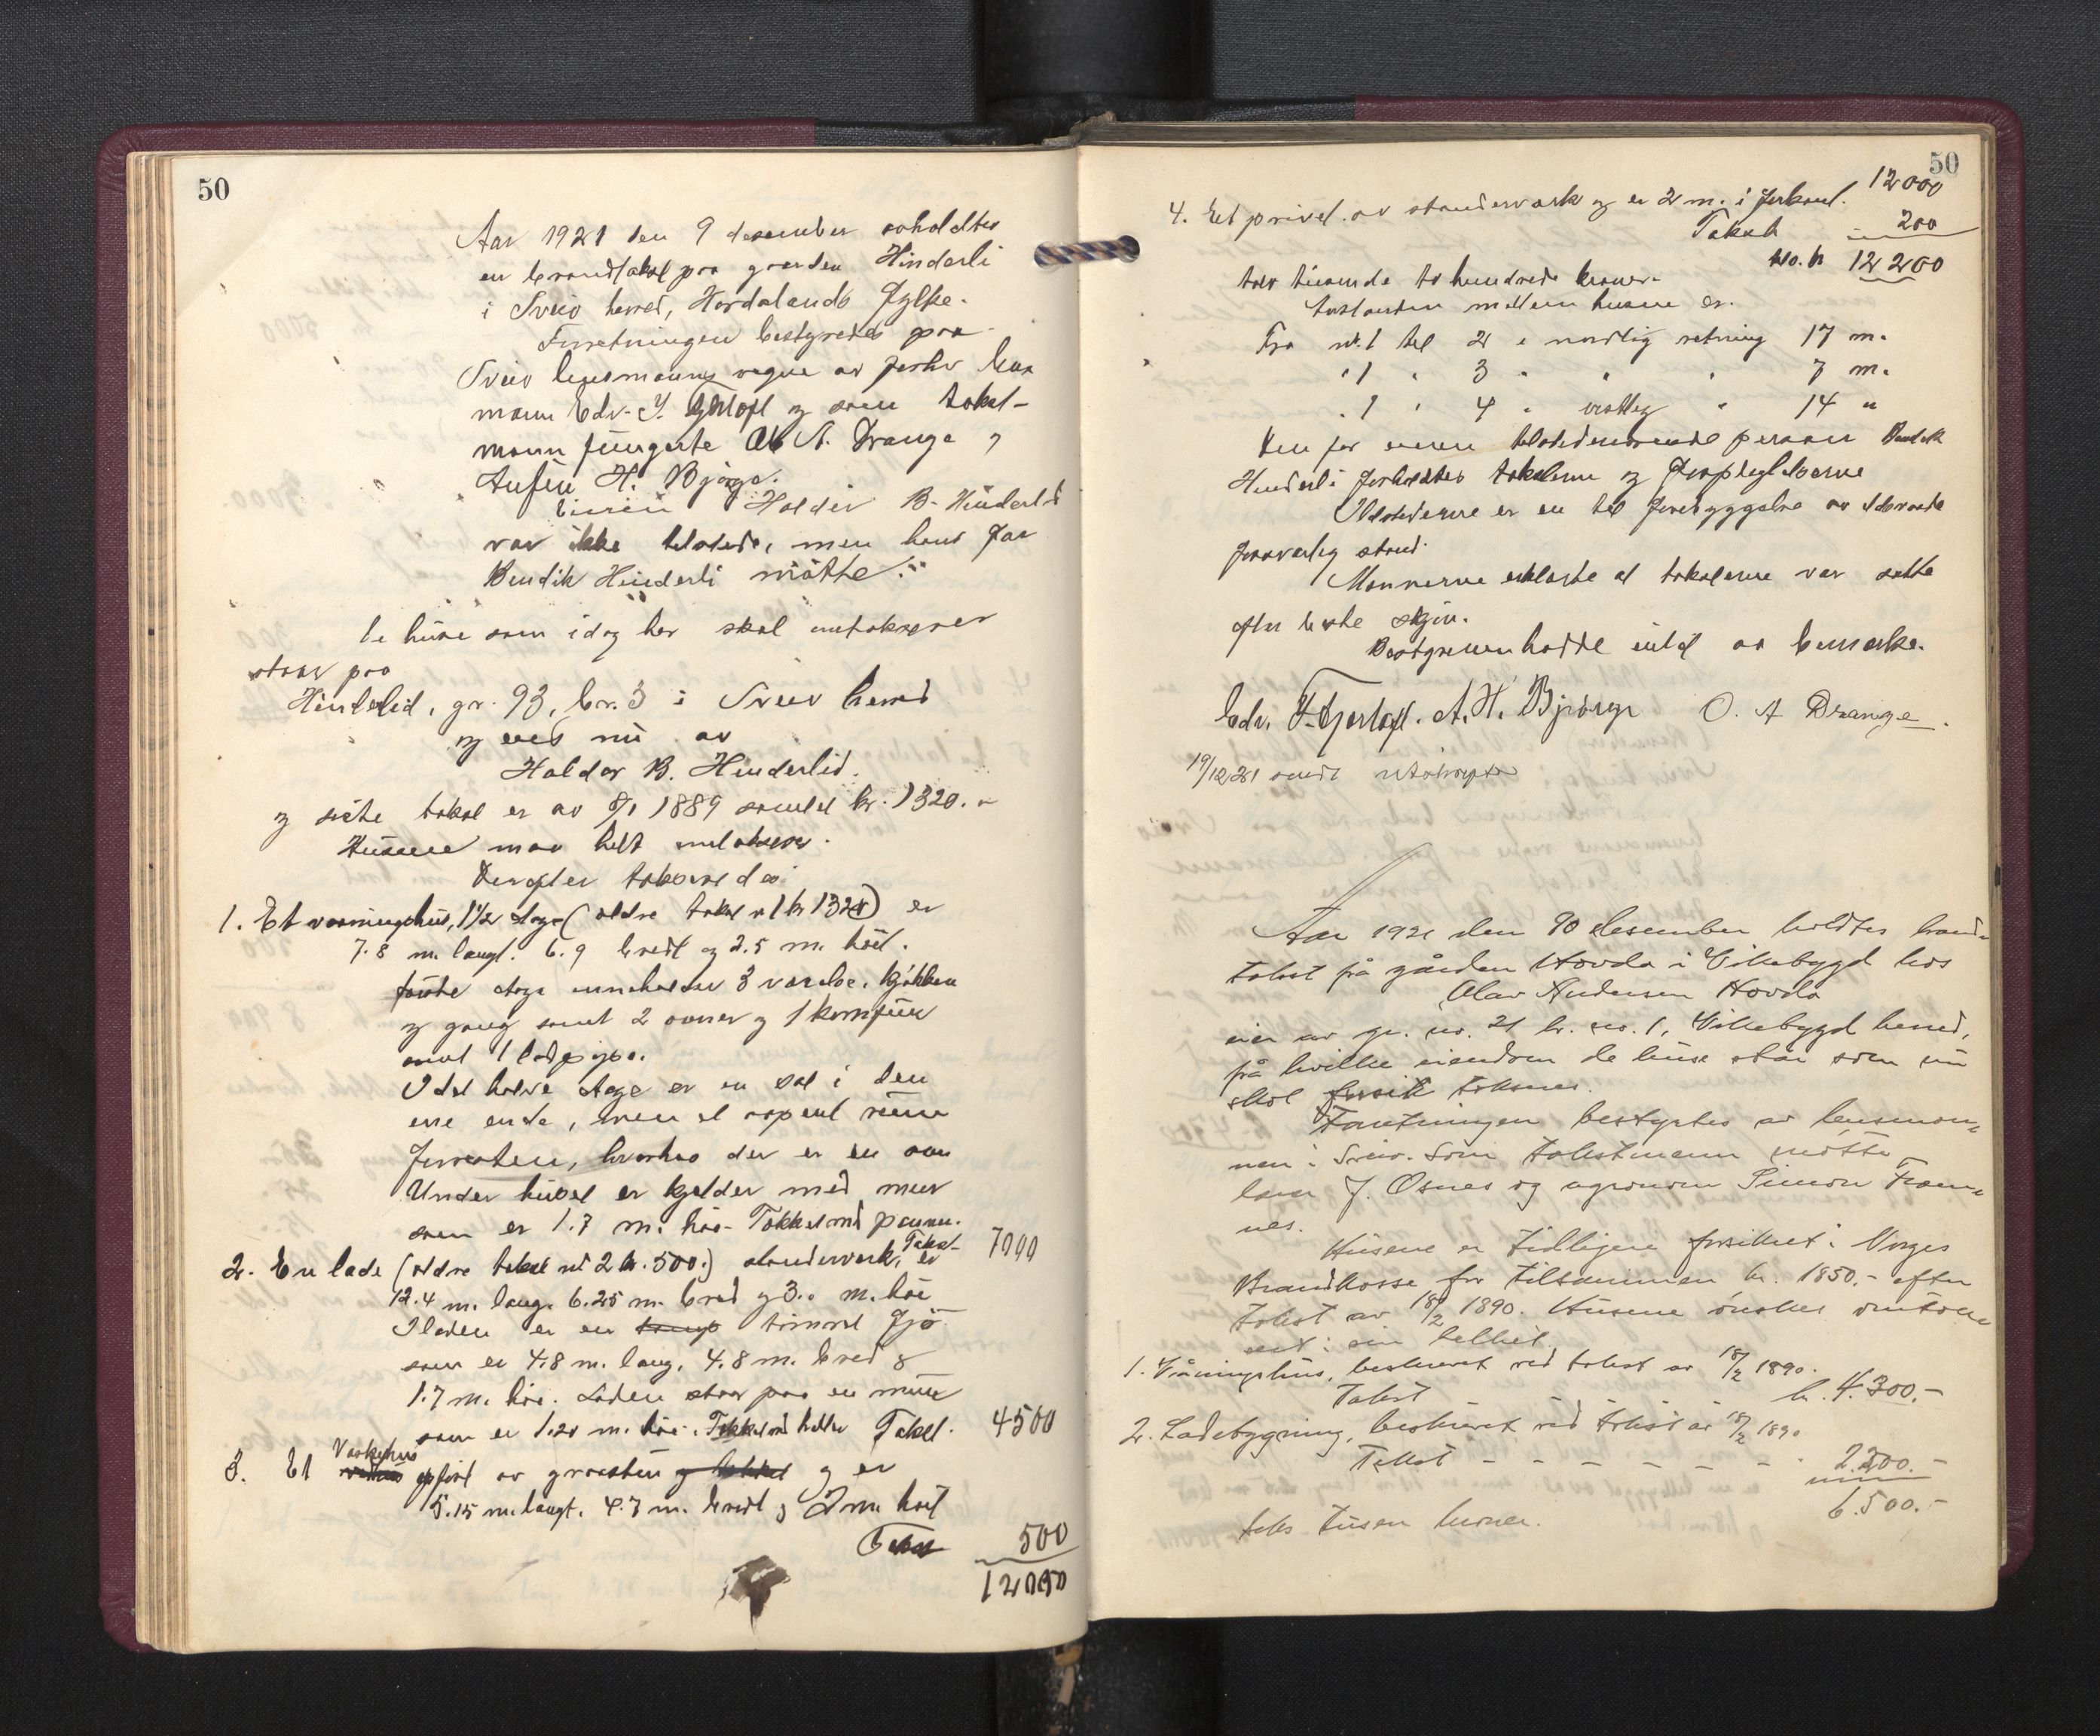 50
Aar 1921 den 9 desember avholdtes
en brandtakst paa gaarden Hinderli
i Sveio herred, Hordalands Fylke.
Forretningen bestyredes paa
Sveio lensmanns vegne av forhv lens
mann Edv. F. Gjertoft og som takst-
mann fungerte Ol. A. Drange og
Anfin H. Bjørge.
Eieren Haldor B. Hinderlid
var ikke tilstede, men hans far
Bendik Hinderli møtte.
De huse som idag her skal omtakseres
staar paa
Hinderlid, gr. 93, br. 3 i Sveio herred
og eies nu av
Haldor B. Hinderlid.
og siste takst er av 8/1 1889 samlet kr. 1320.-
Husene maa helt omtakseres.
Derefter taksertes:
1. Et vaaningshus, 1½ etage (ældre takst nr 1 kr 1320) er
7.8 m. langt. 6.9 bredt og 2.5 m. høit.
første etage inneholder 3 værelse, kjøkken
og gang samt 2 ovner og 1 komfur
samt 1 ladpipe.
I det halve etage er en sal i den
ene ende, men et aapent rum
forresten, hvorhos der er en ovn
Under huset er kjelder med mur
som er 1.7 m. høi. Tækket med panner.
Takst 7000
2. En lade (ældre takst nr 2 kr. 500.) standerverk, er
12.4 m. lang. 6.25 m. bred og 3.0 m. høi
I laden er en tømret fjø
som er 4.8 m. lang, 4.8 m. bred og
1.7 m. høi. Laden staar paa en mur
som er 1.20 m. høi. Tækket med heller Takst. 4500
Vaskehus
3. Et opført av graasten og tækket og er
5.15 m. langt. 4.7 m. bredt og 2 m. høit
Takst 500
12000
50
12000
4. Et privet av standerverk og er 2 m. i firkant.
Takst 200
tils. kr 12200
tolv tusende to hundrede kroner.
Avstanden mellem husene er.
Fra nr. 1 til 2 i nordlig retning 17 m.
" 1 " 3 " " " 7 m.
" 1 " 4 " vestlig " 14 "
Den for eieren tilstedeværende person Bendik
Hinderli forholdtes taksterne og
Ildstederne er en til forebyggelse av ildsvaade
forsvarlig stand.
Mannerne erklærte at taksterne var satte
efter beste skjøn.
Bestyreren hadde intet at bemerke.
Edv. F. Gjertoft. A. H. Bjørge O. A Drange.
19/12/21 sendt utskrift
Aar 1921 den 10 desember holdtes brand-
takst på gården Hovda i Vikebygd hos
Olav Andersen Hovda
eier av gr. nr. 21 br. nr. 1, Vikebygd herred,
på hvilke eiendom de huse står som nu
skal takseres.
Forretningen bestyrtes av lensman-
nen i Sveio. Som takstmenn møtte
Lars J. Osnes og agronom Simon Fram-
nes.
Husene er tidligere forsikret i Norges
Brandkasse for tilsammen kr. 1850.- efter
takst av 18/2 1890. Husene ønskes omtak-
sert i sin helhet.
1. Våningshus, beskrevet ved takst av 18/2 1890.
Takst kr. 4.300.-
2. Ladebygning, beskrevet ved takst av 18/2 1890
Takst - - - - - - - 2.200.-
6.500.-
seks tusen kroner.